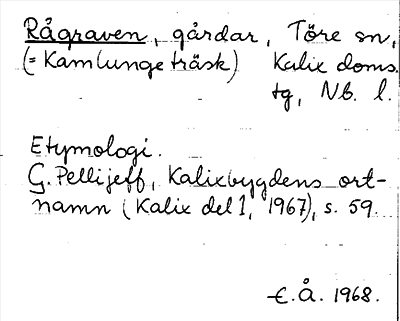 Rågraven, gårdar, Töre sn,
(= Kamlunge träsk) Kalix doms.
tg, Nb. l.
Etymologi.
G. Pellijeff, Kalixbygdens ort-
namn (Kalix del 1, 1967), s. 59.
E. Å. 1968.